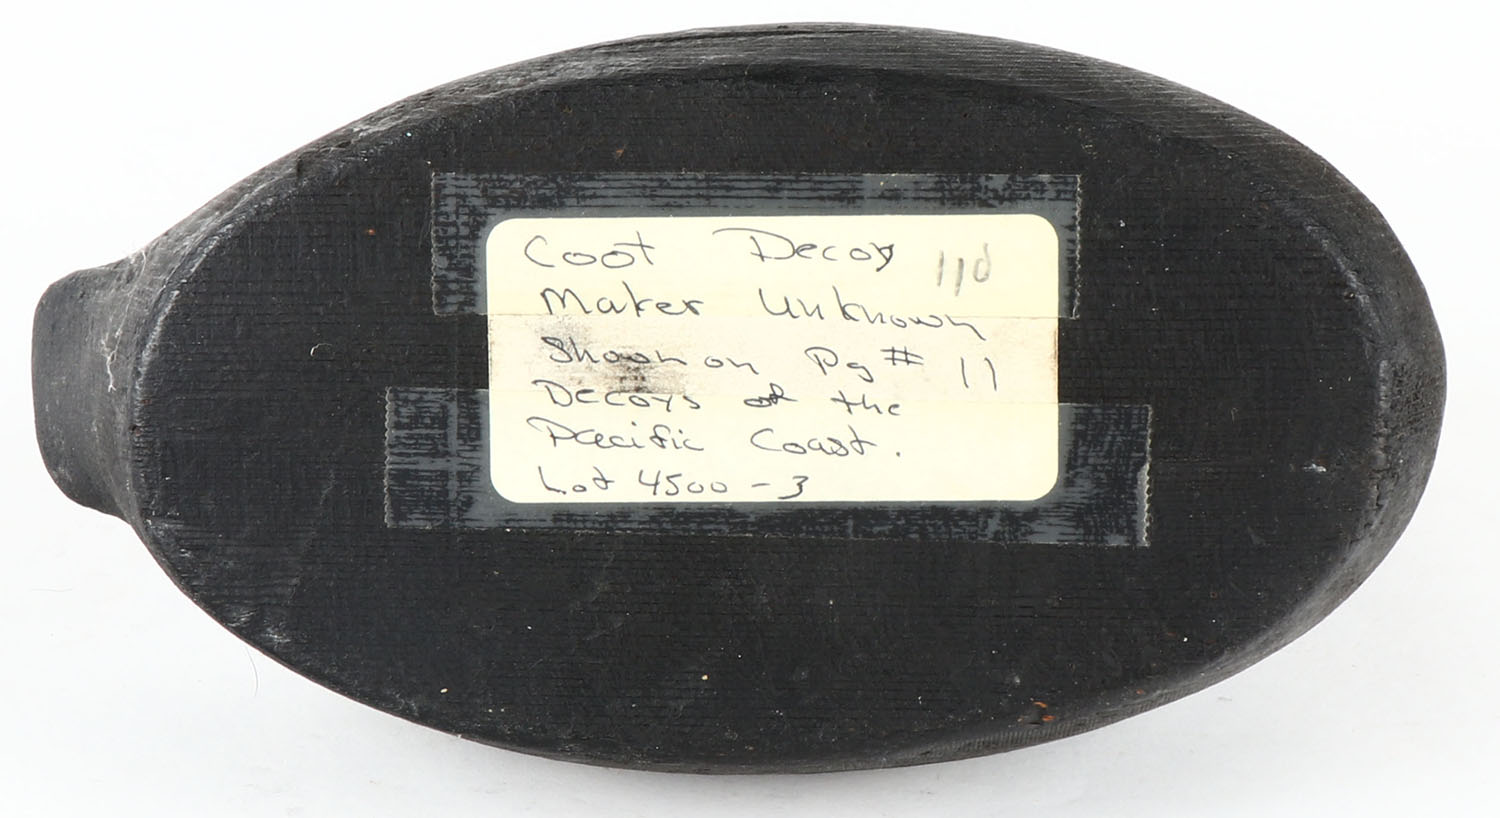 Coot Decoy 11d
Maker Unknown
Shown on Pg # 11
Decoys of the
Pacific Coast.
Lot 4500-3